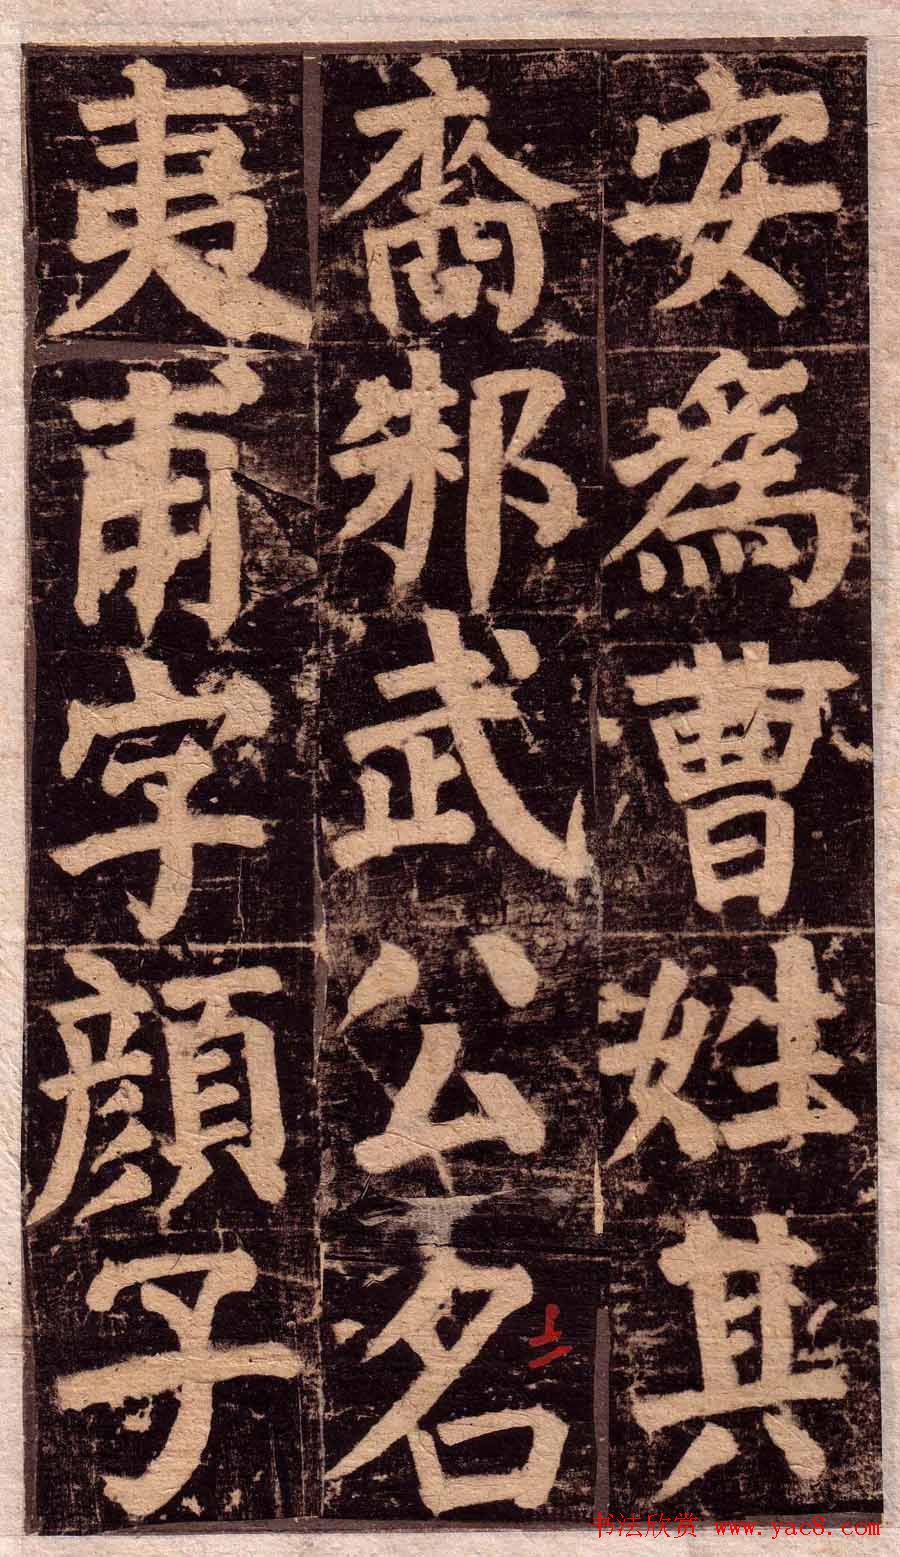 安爲曹姓其
裔邾武公名
夷甫字顏子
书法欣赏 www.yac8.com